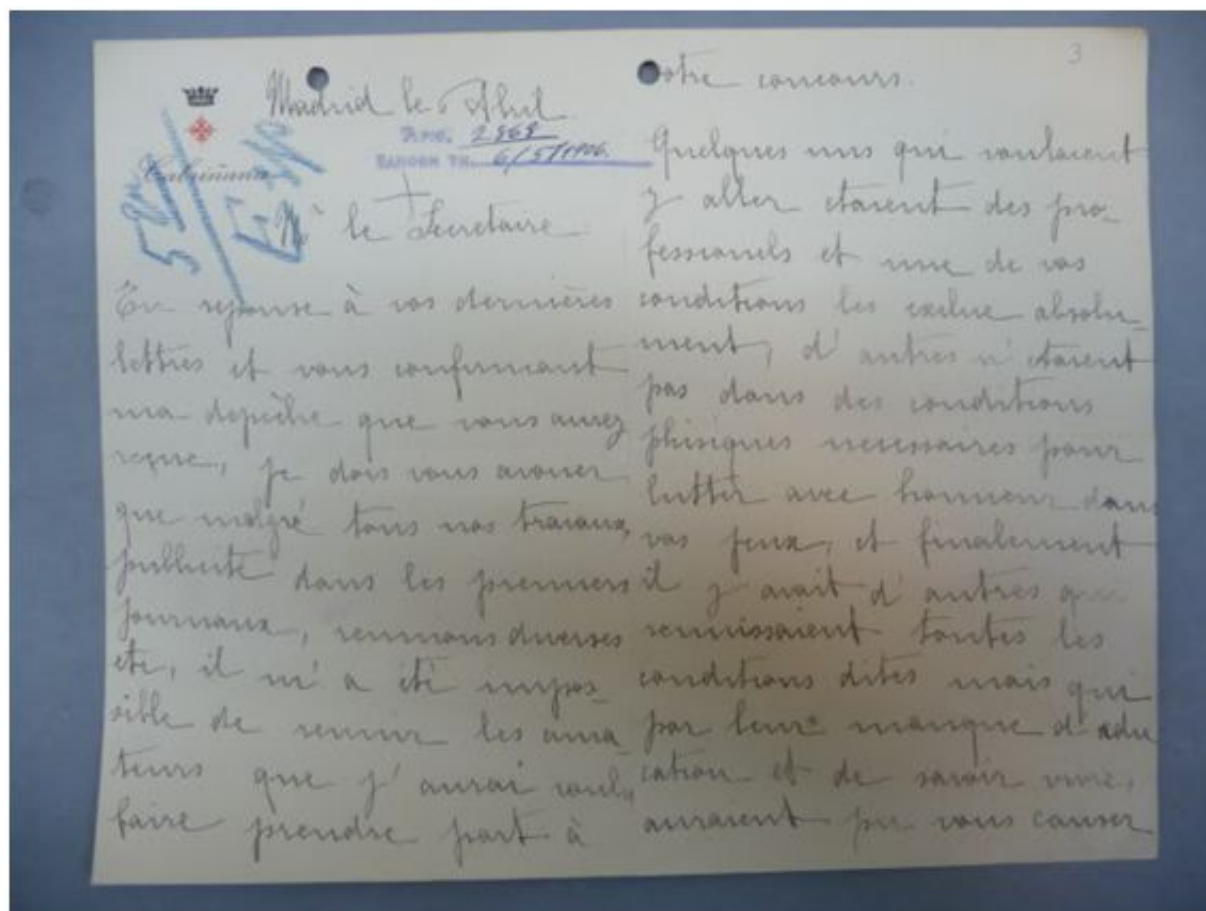 Madrid le Abril
2969
6/5/1906.
Cabriñana
58
le Secretaire
En reponse à vos dernières
lettres et vous confirmant
ma depêche que vous aurez
reçue, je dois vous avouer
que malgré tous nos travaux,
publicité dans les premiers
journaux, reunions diverses
etc, il m'a été impos-
sible de reunir les ama-
teurs que j'aurai voulu
faire prendre part à
votre concours.
3
Quelques uns qui voulaient
y aller etaient des pro-
fessionels et une de vos
conditions les exclue absolu-
ment, d'autres n'etaient
pas dans des conditions
phisiques necessaires pour
lutter avec honneur dans
vos jeux, et finalement
il y avait d'autres que
reunissaient toutes les
conditions dites mais qui
par leur manque d'edu
cation et de savoir vivre,
auraient pu vous causer